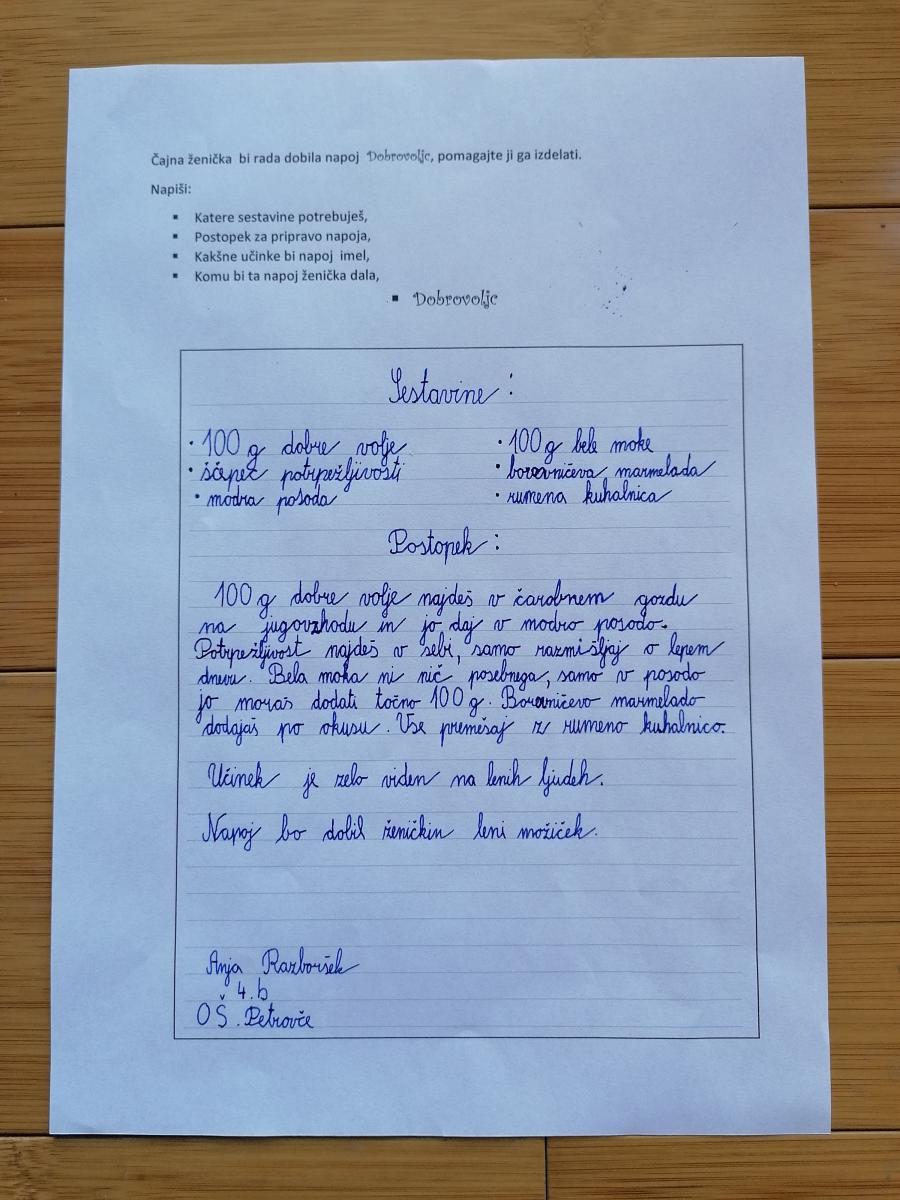 Čajna ženička bi rada dobila napoj Dobrovoljc, pomagajte ji ga izdelati.
Napiši:
▪ Katere sestavine potrebuješ,
▪ Postopek za pripravo napoja,
▪ Kakšne učinke bi napoj imel,
▪ Komu bi ta napoj ženička dala,
▪ Dobrovoljc
Sestavine:
• 100 g dobre volje
• ščepec potrpežljivosti
• modra posoda
• 100 g bele moke
• borovničeva marmelada
• rumena kuhalnica
Postopek:
100 g dobre volje najdeš v čarobnem gozdu
na jugovzhodu in jo daj v modro posodo.
Potrpežljivost najdeš v sebi, samo razmišljaj o lepem
dnevu. Bela moka ni nič posebnega, samo v posodo
jo moraš dodati točno 100 g. Borovničevo marmelado
dodajaš po okusu. Vse premešaj z rumeno kuhalnico.
Učinek je zelo viden na lenih ljudeh.
Napoj bo dobil ženičkin leni možiček.
Anja Razboršek
4.b
OŠ. Petrovče